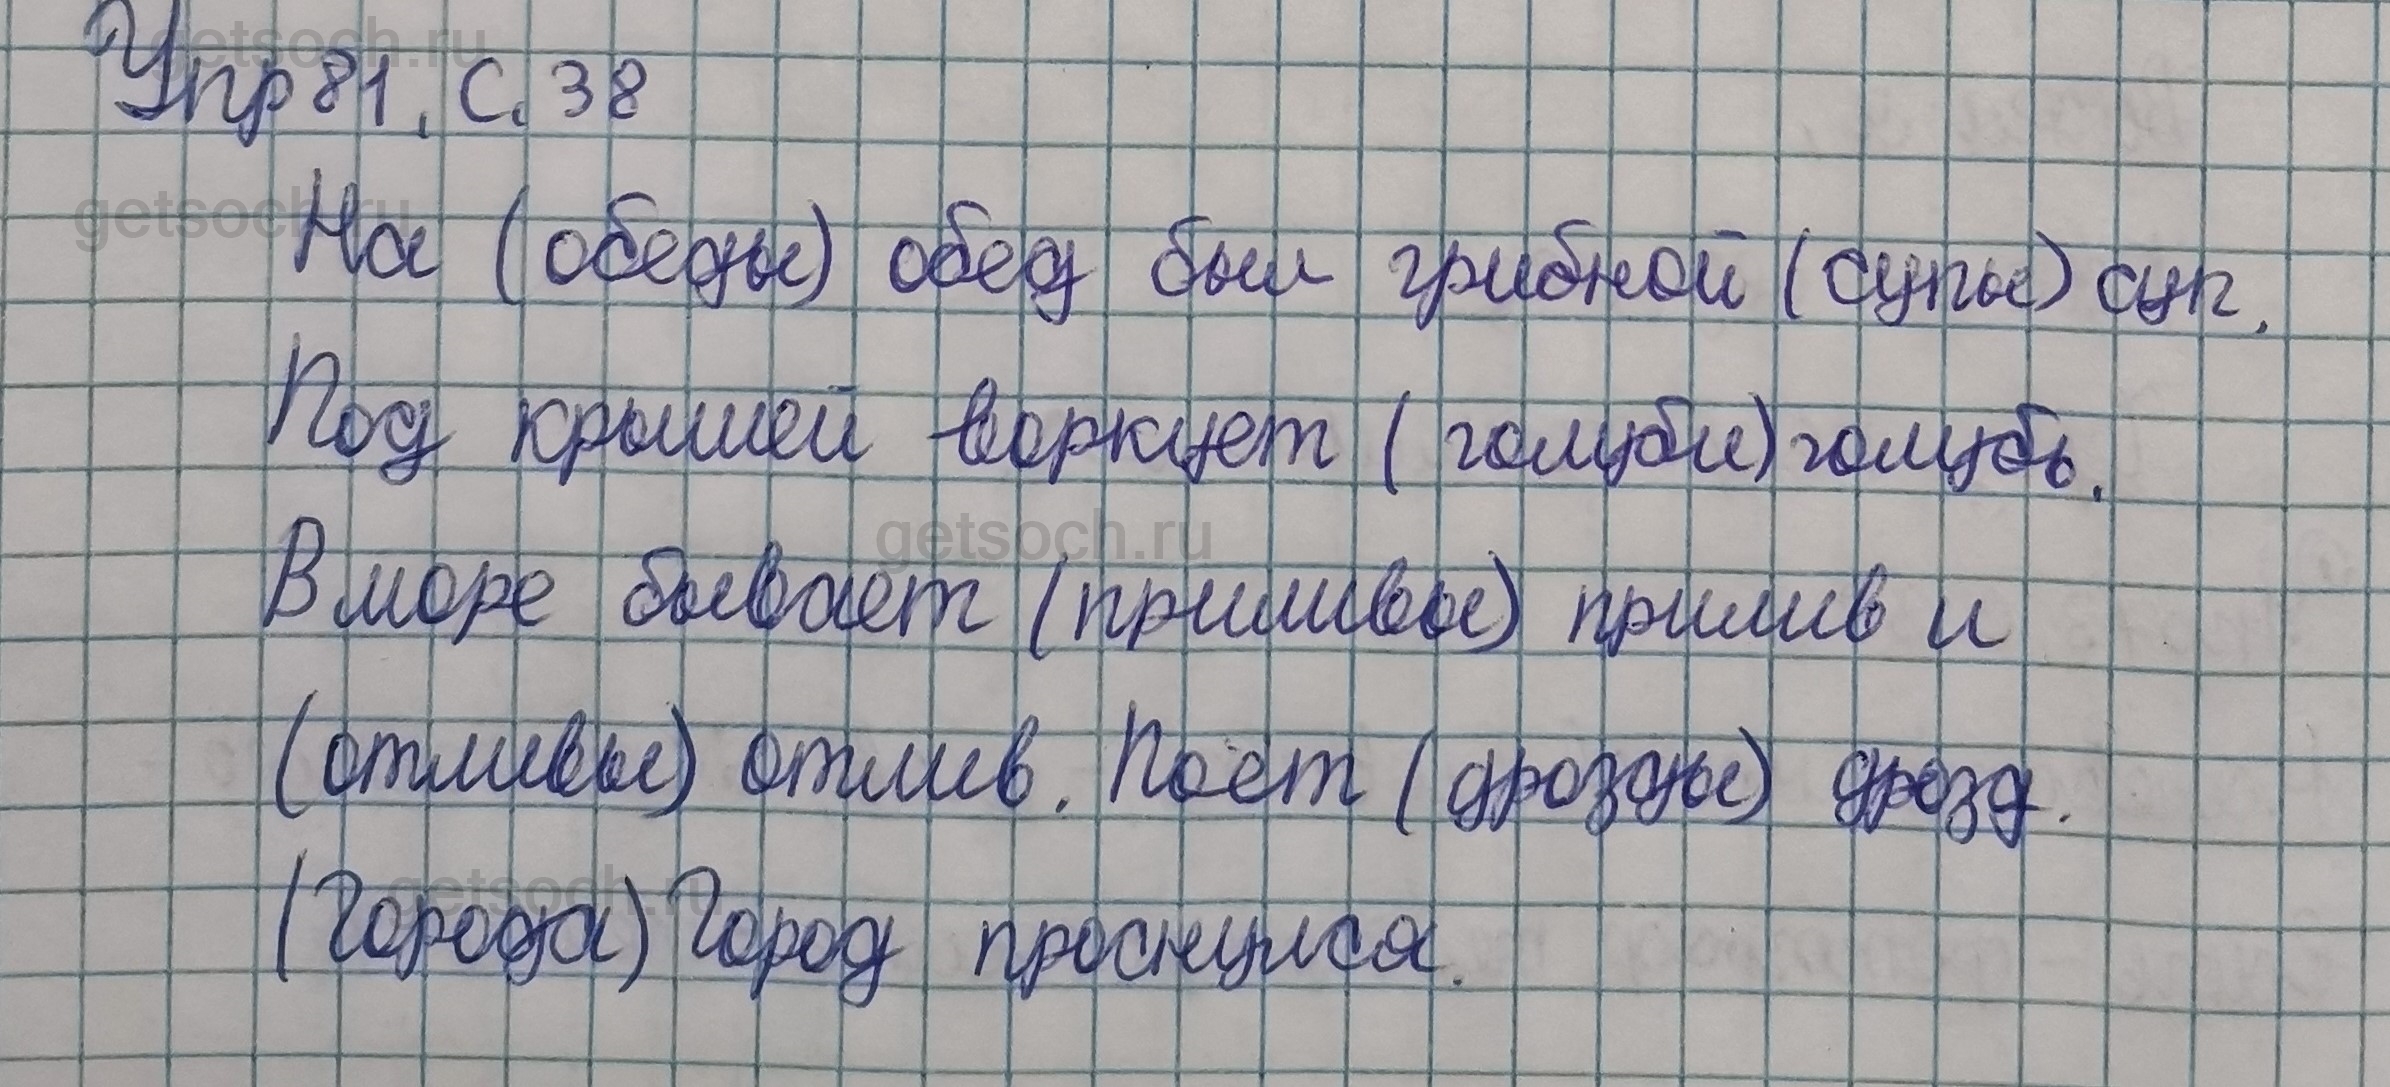 Упр 81, с. 38
На (обеды) обед был грибной (супы) суп.
Под крышей воркует (голуби) голубь.
В море бывает (приливы) прилив и
(отливы) отлив. Поет (дрозды) дрозд.
(Города) Город проснулся.
getsoch.ru
getsoch.ru
getsoch.ru
getsoch.ru